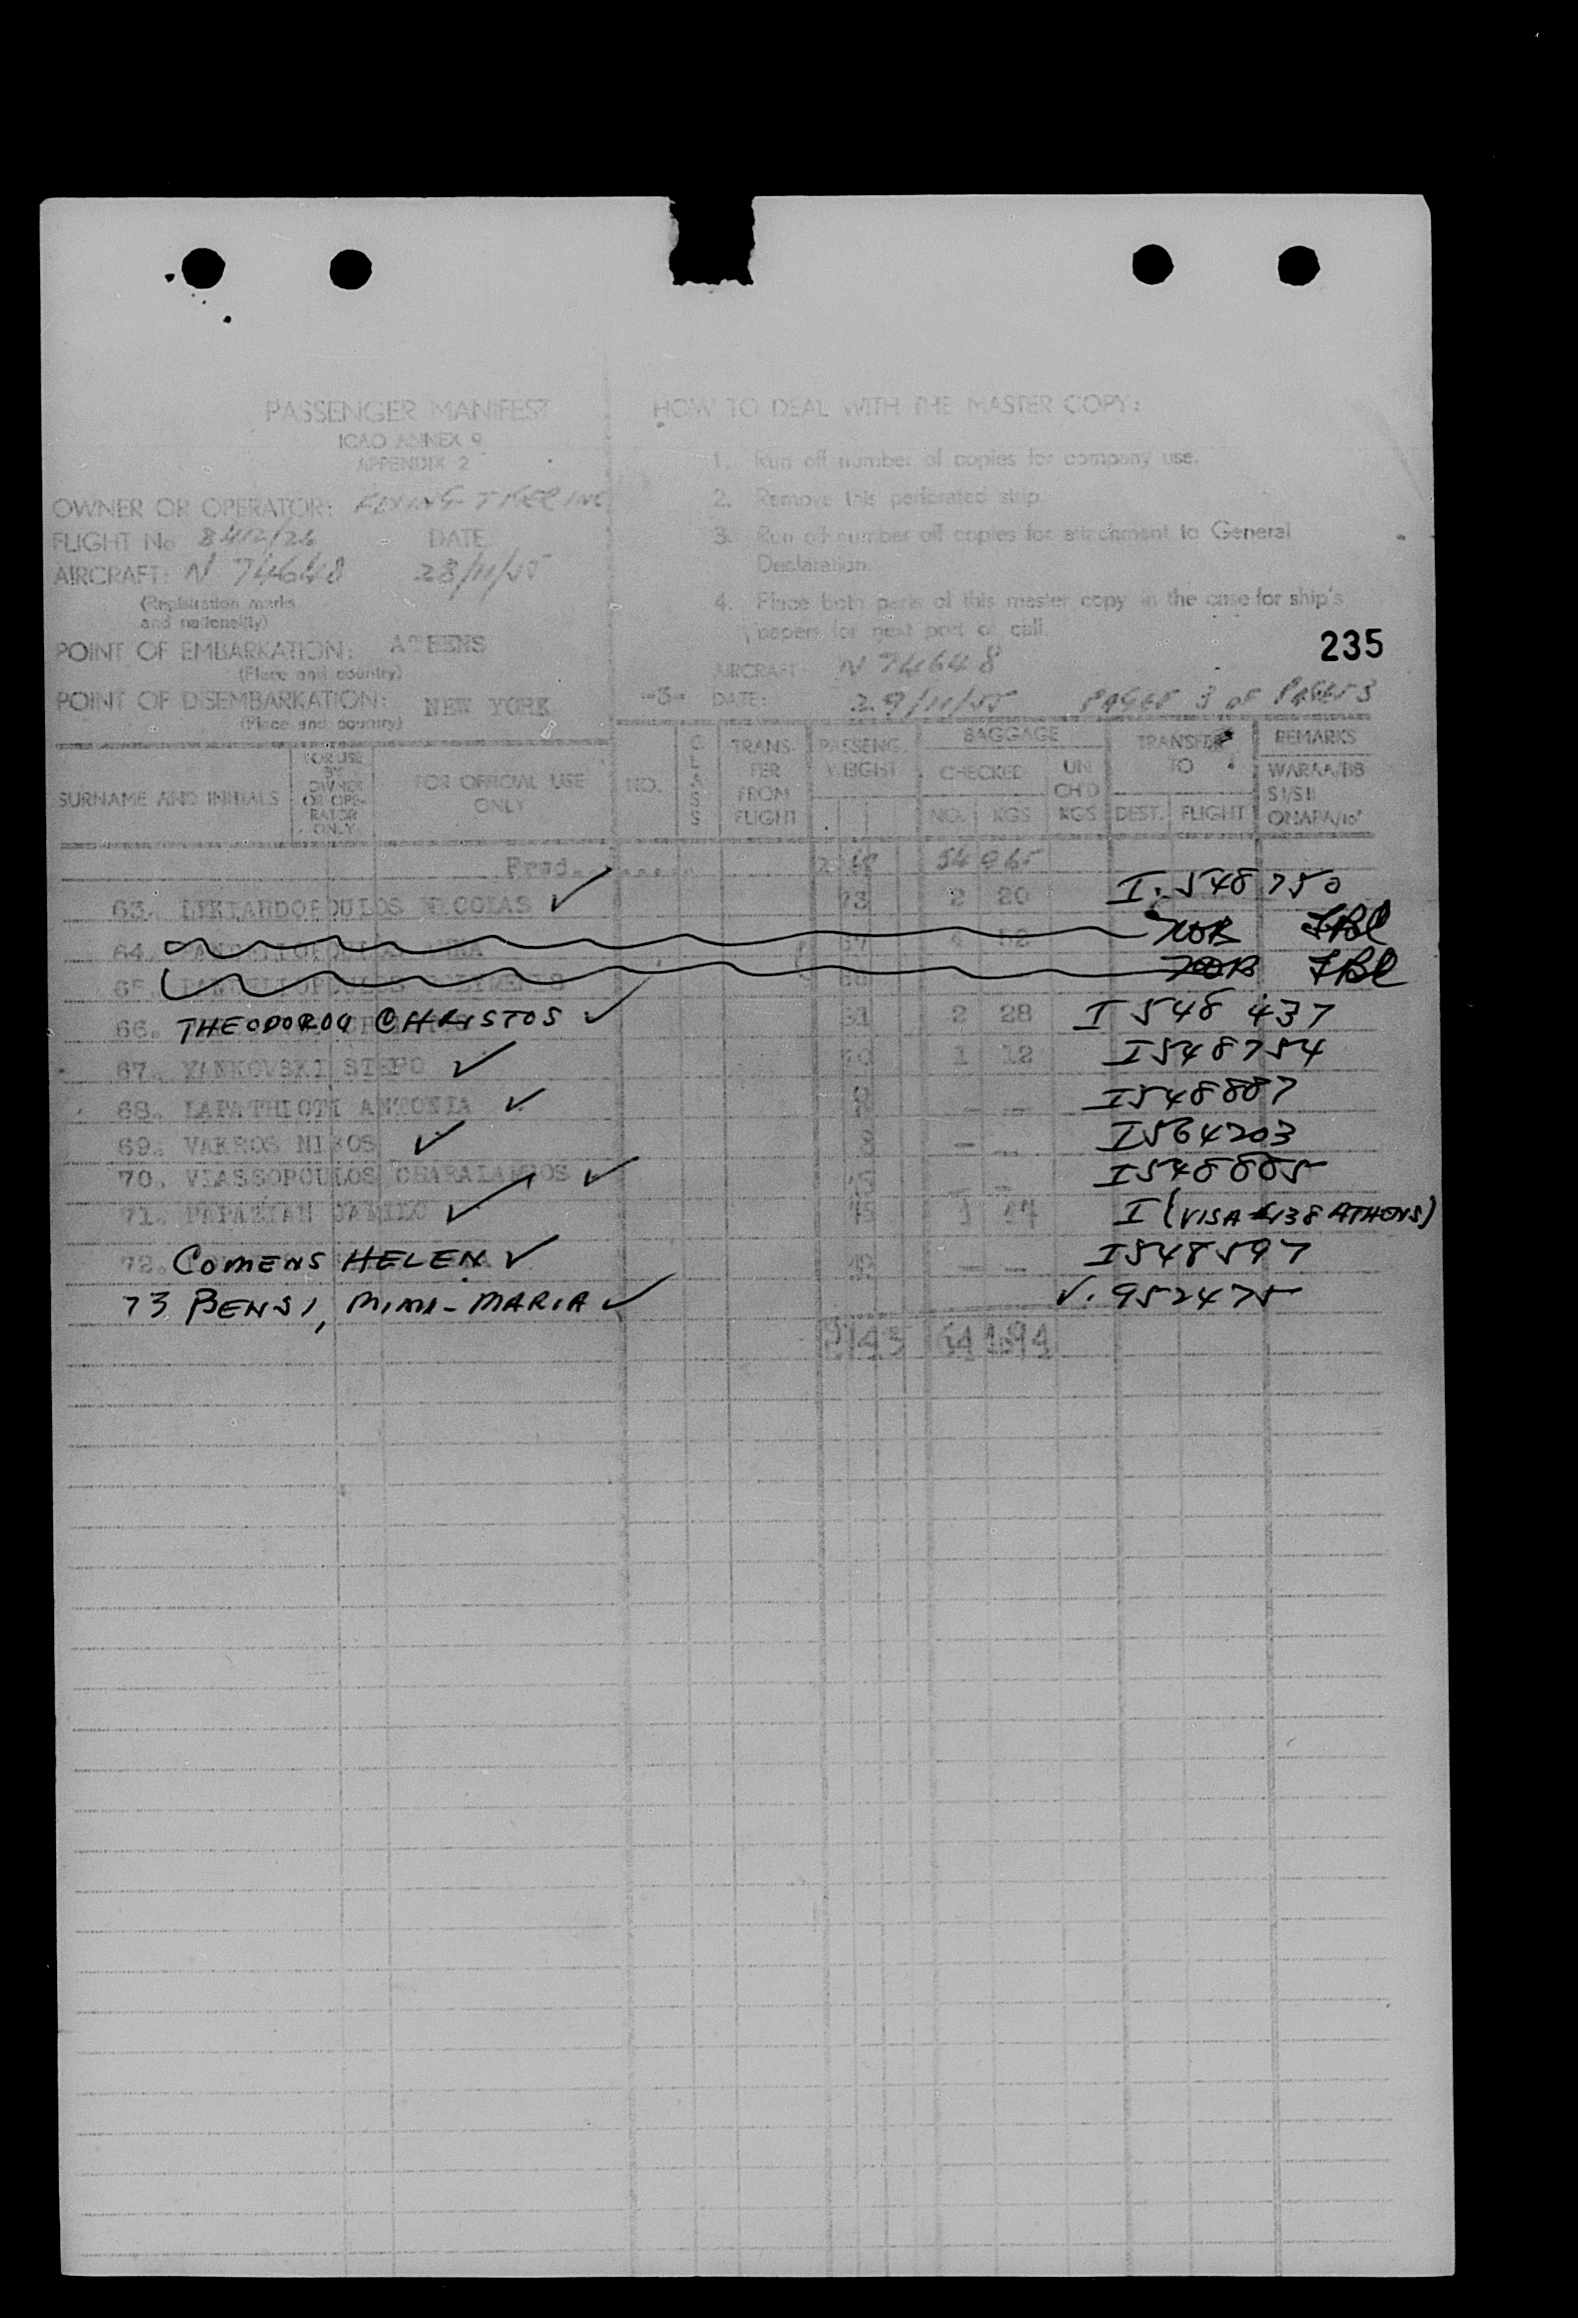 PASSENGER MANIFEST
ICAO ANNEX 9
APPENDIX 2
OWNER OR OPERATOR: FLYING TIGER INC
FLIGHT No 8412/26 DATE
AIRCRAFT: N 74648 28/11/55
(Registration marks
and nationality)
POINT OF EMBARKATION: ATHENS
(Place and country)
POINT OF DISEMBARKATION: NEW YORK
(Place and country)
HOW TO DEAL WITH THE MASTER COPY:
1. Run off number of copies for company use.
2. Remove this perforated strip.
3. Run off number off copies for attachment to General
Declaration.
4. Place both parts of this master copy in the case for ship's
papers for next port of call.
235
AIRCRAFT: N 74648
-3- DATE: 29/11/55 PAGES 3 OF PAGES 3
SURNAME AND INITIALS
FOR USE BY OWNER OR OPERATOR ONLY
FOR OFFICIAL USE ONLY
NO.
CLASS
TRANSFER FROM FLIGHT
PASSENG. WEIGHT
BAGGAGE
CHECKED
NO. KGS
UN CH'D KGS
TRANSFER TO
DEST. FLIGHT
REMARKS
54 965
63. NICOLAS ✓ 73 2 20 I. 548750
64. NOB
65. NOB
66. THEODOROU CHRISTOS ✓ 81 2 28 I 548 437
67. YANKOVSKI ✓ 70 1 12 I548754
68. LAPATHIOTI ANTONIA ✓ - - I548887
69. NIKOS ✓ - - I564203
70. VLASSOPOULOS CHARALAMPOS ✓ - - I548885
71. PAPAZIAN ✓ I (VISA 4138 ATHENS)
72. COMENS HELEN ✓ - - I548597
73 BENSI, MIMI-MARIA ✓ V. 952475